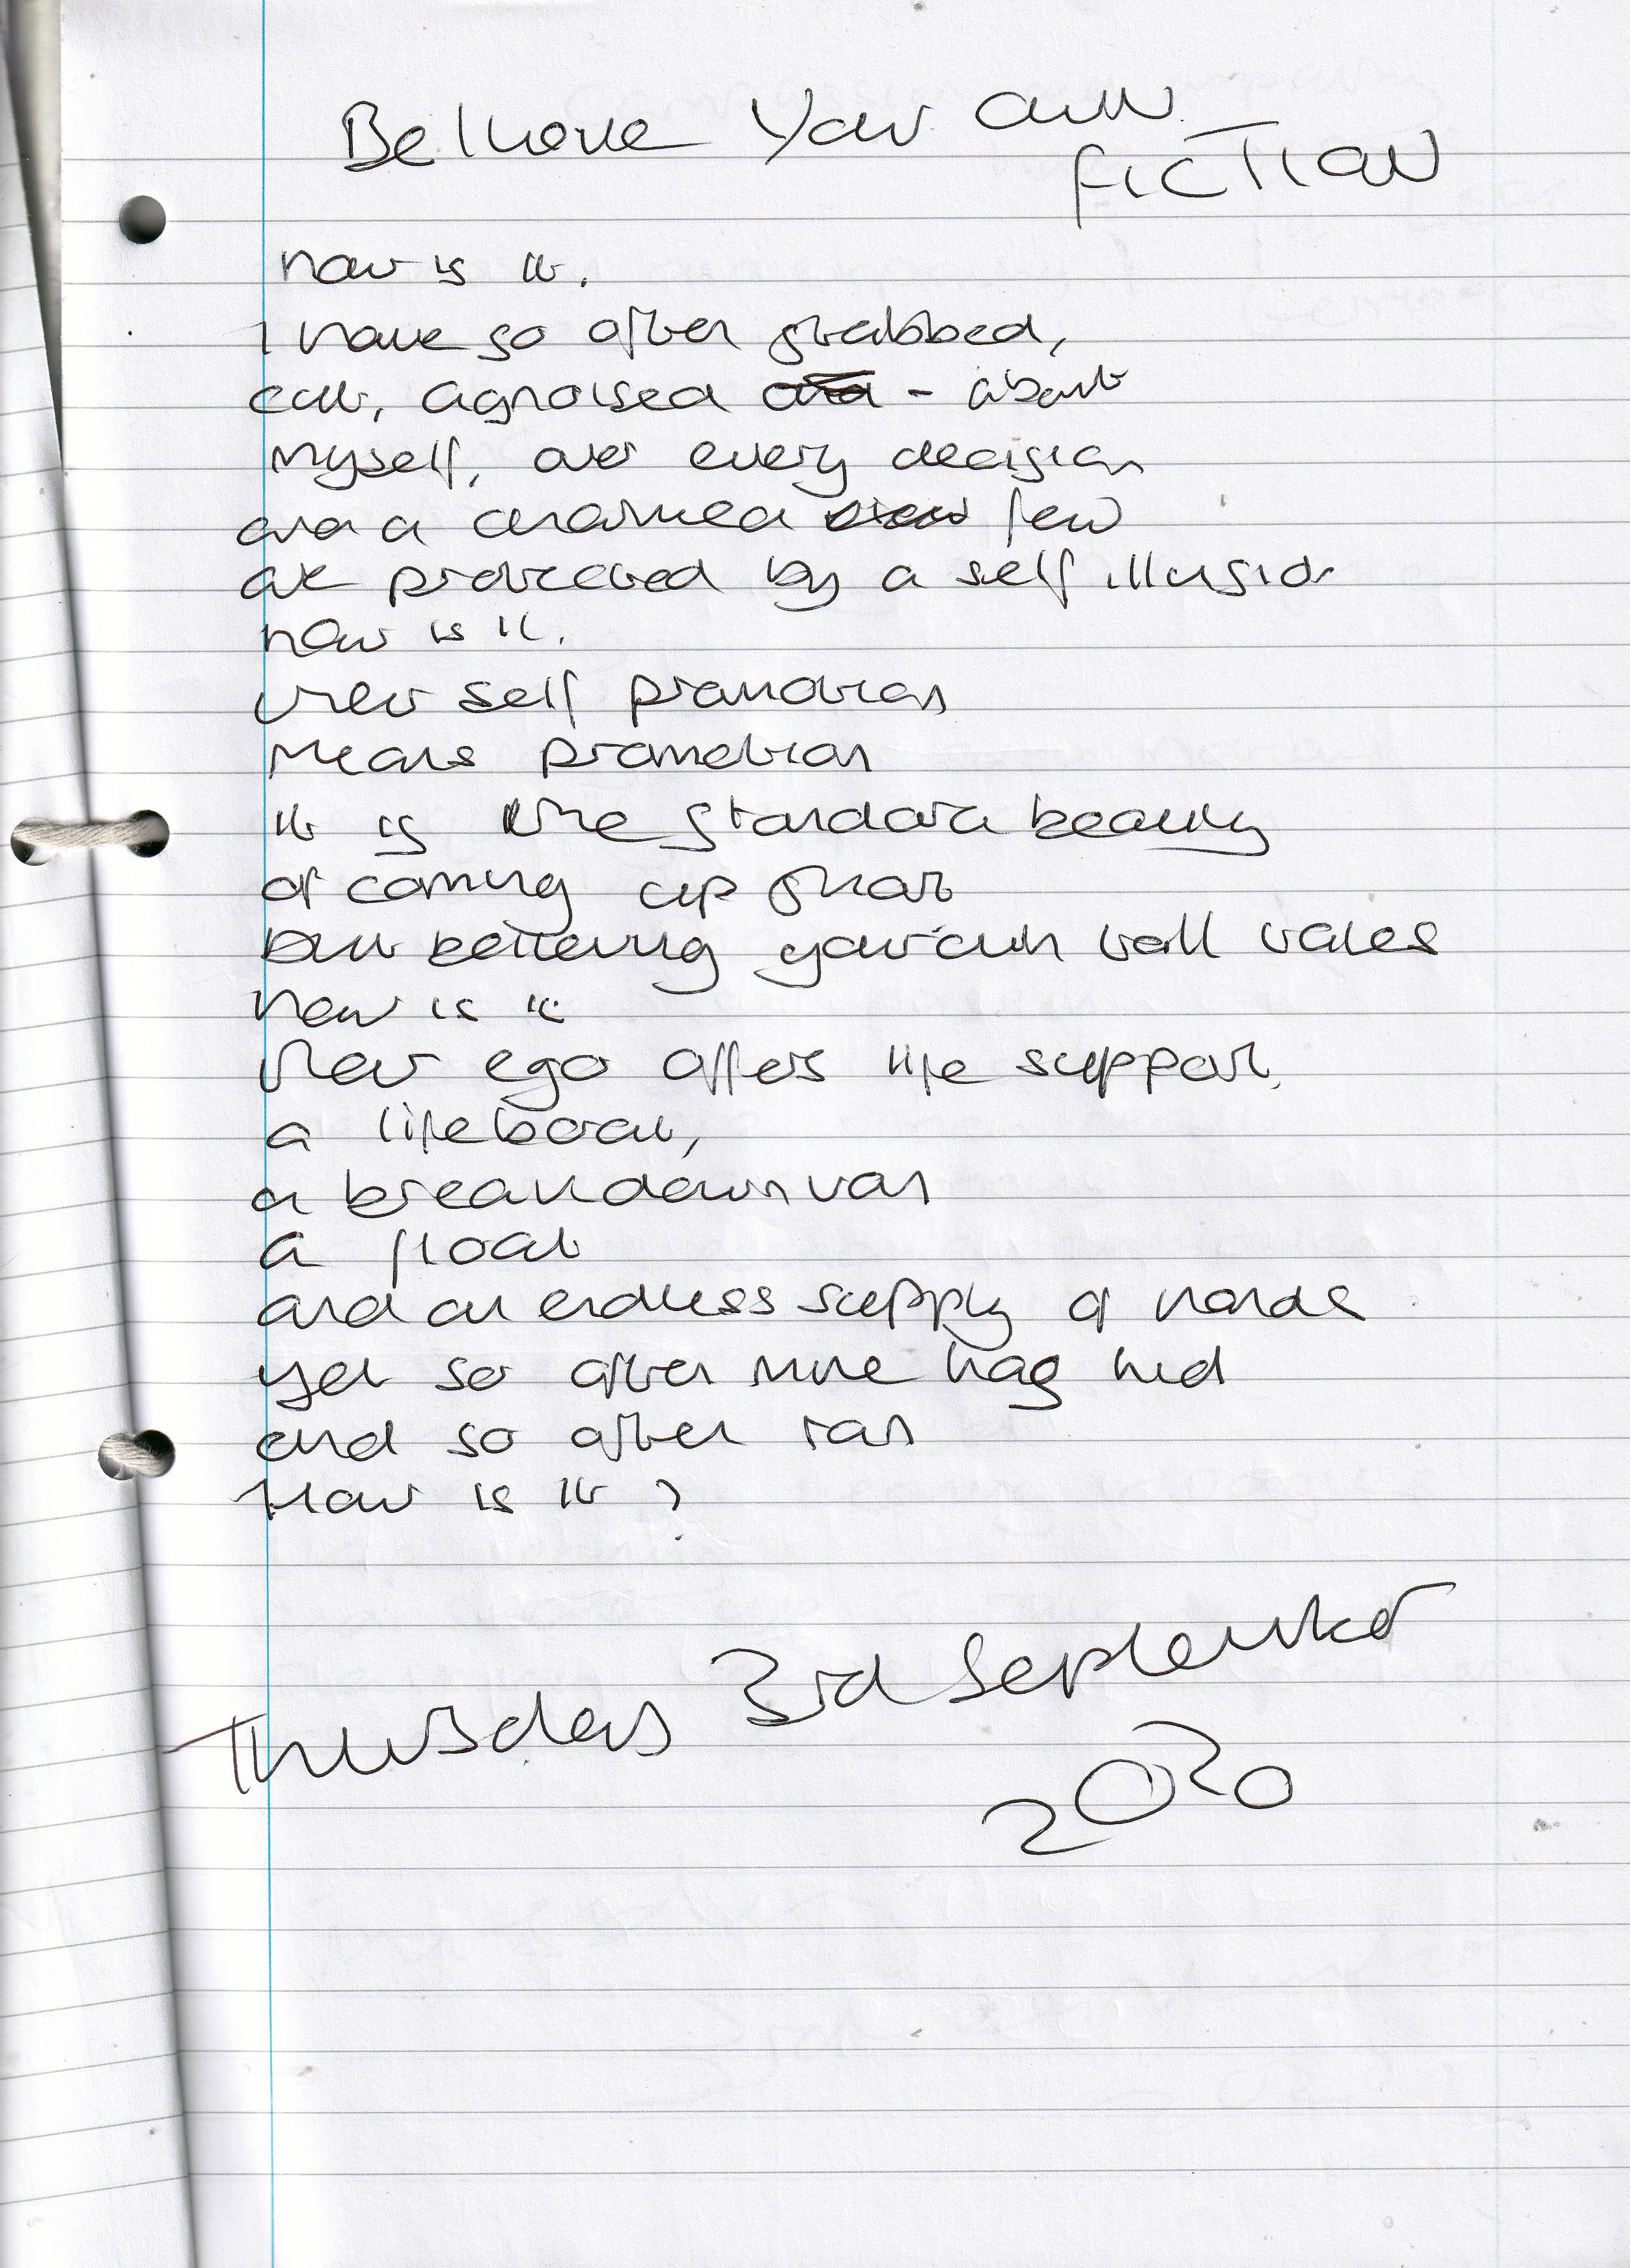 Believe Your own
FICTION
how is it.
I have so often grabbed,
cut, agnoised - about
myself, over every decision
and a charmed few
are protected by a self illusion
how is it.
their self promotion
means promotion
it is the standard beauty
of coming up short
but believing your own tall tales
how is it
their ego offers life support,
a lifeboat,
a breakdown van
a float
and an endless supply of hands
yet so often mine has hid
and so often ran
How is it?
Thursday 3rd September
2020